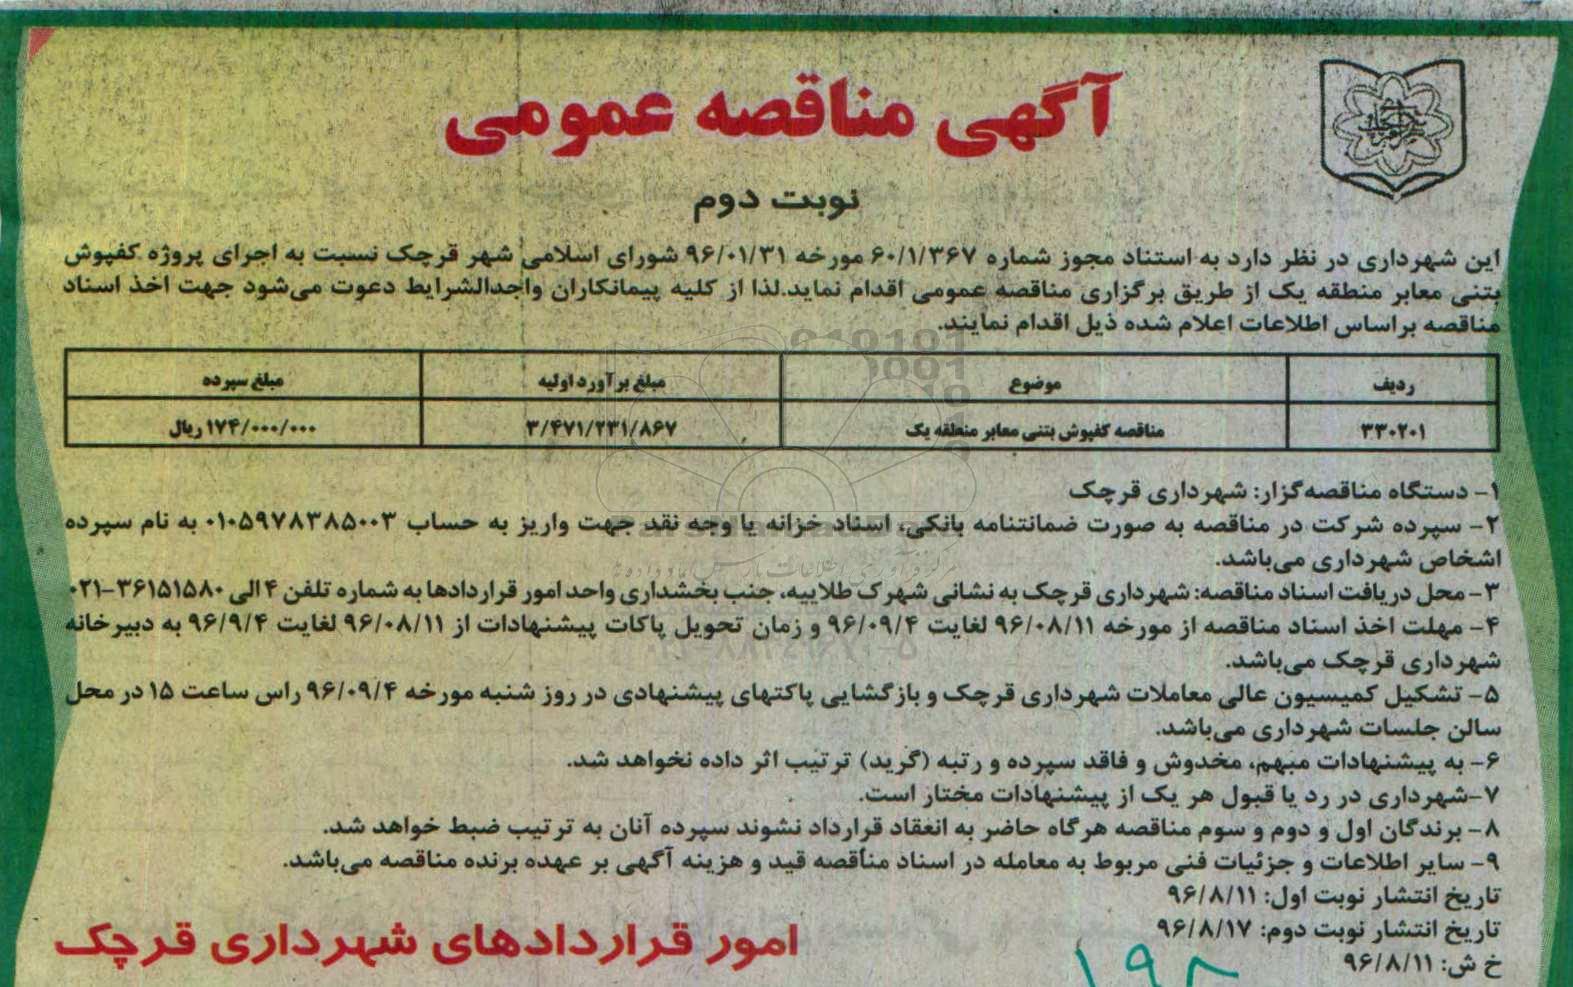 آگهی مناقصه عمومی
نوبت دوم
این شهرداری در نظر دارد به استناد مجوز شماره ۶۰/۱/۳۶۷ مورخه ۹۶/۰۱/۳۱ شورای اسلامی شهر قرچک نسبت به اجرای پروژه کفپوش
بتنی معابر منطقه یک از طریق برگزاری مناقصه عمومی اقدام نماید.لذا از کلیه پیمانکاران واجدالشرایط دعوت می‌شود جهت اخذ اسناد
مناقصه براساس اطلاعات اعلام شده ذیل اقدام نمایند.
ردیف موضوع مبلغ برآورد اولیه مبلغ سپرده
۳۳۰۲۰۱ مناقصه کفپوش بتنی معابر منطقه یک ۳/۴۷۱/۲۳۱/۸۶۷ ۱۷۴/۰۰۰/۰۰۰ ریال
۱- دستگاه مناقصه‌گزار: شهرداری قرچک
۲- سپرده شرکت در مناقصه به صورت ضمانتنامه بانکی، اسناد خزانه یا وجه نقد جهت واریز به حساب ۰۱۰۵۹۷۸۳۸۵۰۰۳ به نام سپرده
اشخاص شهرداری می‌باشد.
۳- محل دریافت اسناد مناقصه: شهرداری قرچک به نشانی شهرک طلاییه، جنب بخشداری واحد امور قراردادها به شماره تلفن ۴ الی ۳۶۱۵۱۵۸۰-۰۲۱
۴- مهلت اخذ اسناد مناقصه از مورخه ۹۶/۰۸/۱۱ لغایت ۹۶/۰۹/۴ و زمان تحویل پاکات پیشنهادات از ۹۶/۰۸/۱۱ لغایت ۹۶/۹/۴ به دبیرخانه
شهرداری قرچک می‌باشد.
۵- تشکیل کمیسیون عالی معاملات شهرداری قرچک و بازگشایی پاکتهای پیشنهادی در روز شنبه مورخه ۹۶/۰۹/۴ راس ساعت ۱۵ در محل
سالن جلسات شهرداری می‌باشد.
۶- به پیشنهادات مبهم، مخدوش و فاقد سپرده و رتبه (گرید) ترتیب اثر داده نخواهد شد.
۷-شهرداری در رد یا قبول هر یک از پیشنهادات مختار است.
۸- برندگان اول و دوم و سوم مناقصه هرگاه حاضر به انعقاد قرارداد نشوند سپرده آنان به ترتیب ضبط خواهد شد.
۹- سایر اطلاعات و جزئیات فنی مربوط به معامله در اسناد مناقصه قید و هزینه آگهی بر عهده برنده مناقصه می‌باشد.
تاریخ انتشار نوبت اول: ۹۶/۸/۱۱
تاریخ انتشار نوبت دوم: ۹۶/۸/۱۷
خ ش: ۹۶/۸/۱۱
امور قراردادهای شهرداری قرچک